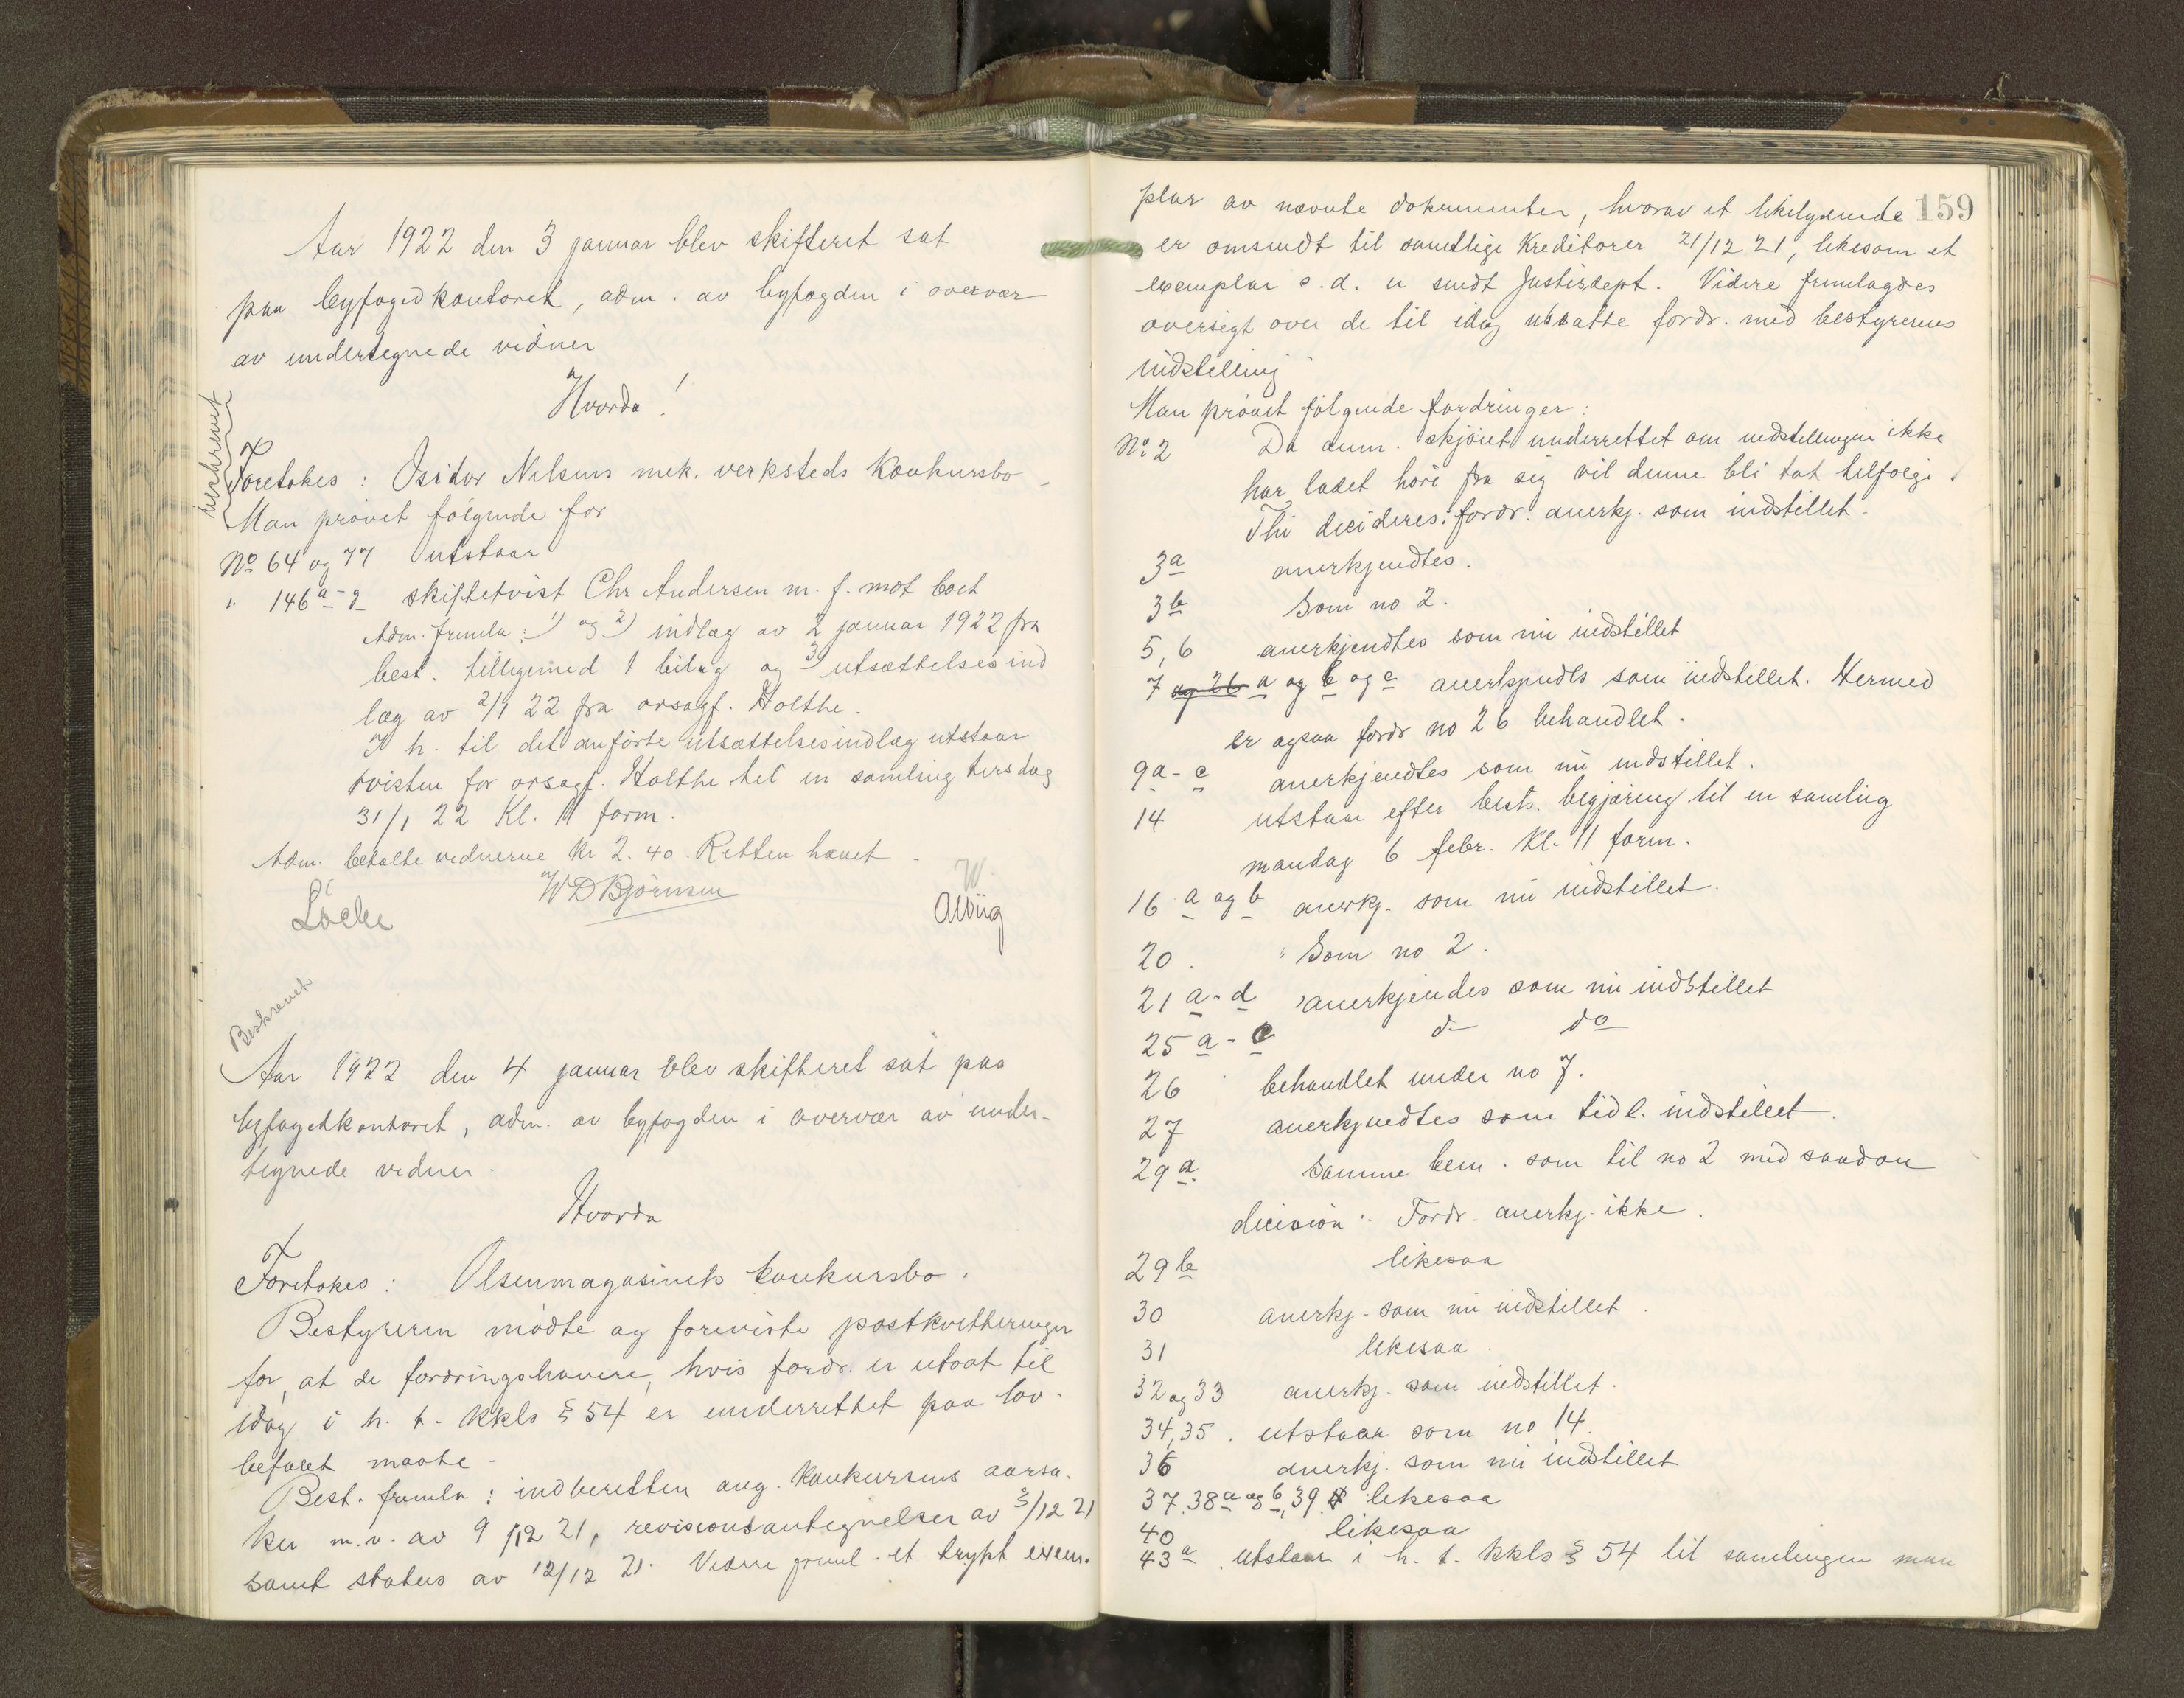 Aar 1922 den 3 januar blev skifteret sat
paa byfogedkontoret, adm. av byfogden i overvær
av undertegnede vidner
Hvorda!
beskrevet
Foretokes: Isidor Nilsens mek. verksteds konkursbo
Man prøvet følgende for
No 64 og 77 utstaar
" 146 a-g skiftetvist Chr Andersen m. f. mot boet
Adm. fremla: 1) og 2) indlæg av 2 januar 1922 fra
best. tilligemed 1 bilag og 3) utsættelsesind
læg av 2/1 22 fra orsagf. Holthe.
I h. til det anførte utsættelsesindlæg utstaar
tvisten for orsagf. Holthe til en samling tirsdag
31/1 22 Kl. 11 form.
Adm. betalte vidnerne Kr 2.40. Retten hævet
W D Bjørnsen
Beskrevet
Aar 1922 den 4 januar blev skifteret sat paa
byfogedkontoret, adm. av byfogden i overvær av under-
tegnede vidner.
Hvorda
Foretokes: Olsenmagasinets konkursbo.
Bestyreren mødte og foreviste postkvitteringer
for, at de fordringshavere, hvis fordr. er utsat til
idag i h. t. kkls § 54 er underrettet paa lov-
befalet maate.
Best. fremla: indberetten ang. konkursens aarsa-
ker m.v. av 9/12 21, revisionsantegnelser av 3/12 21
samt status av 12/12 21. Videre freml. et trykt exem-
159
plar av nævnte dokumenter, hvorav et likelydende
er omsendt til samtlige Kreditorer 21/12 21, likesom et
exemplar s. d. er sendt Justisdept. Videre fremlagdes
oversigt over de til idag utsatte fordr. med bestyrerens
indstilling
Man prøvet følgende fordringer:
No 2 Da anm. skjønt underrettet om indstillingen ikke
har ladet høre fra sig vil denne bli tat tilfølge.
Thi decideres: fordr. anerkj. som indstillet.
3a anerkjendtes.
3b Som no 2.
5, 6 anerkjendtes som nu indstillet
7 og 26 a og b og c anerkjendts som indstillet. Hermed
er ogsaa fordr no 26 behandlet.
9a-c anerkjendtes som nu indstillet.
14 utstaar efter best. begjæring til en samling
mandag 6 febr. Kl. 11 form.
16 a og b anerkj. som nu indstillet.
20. Som no 2.
21 a-d anerkjendes som nu indstillet
25 a-c do do
26 behandlet under no 7.
27 anerkjendtes som tidl. indstillet.
29 a. Samme bem. som til no 2 med saadan
decision: Fordr. anerkj. ikke.
29 b likesaa
30 anerkj. som nu indstillet.
31 likesaa.
32 og 33 anerkj. som indstillet.
34, 35. utstaar som no 14.
36 anerkj. som nu indstillet
37, 38 a og b, 39 likesaa
40 likesaa
43 a. utstaar i h. t. kkls § 54 til samlingen man